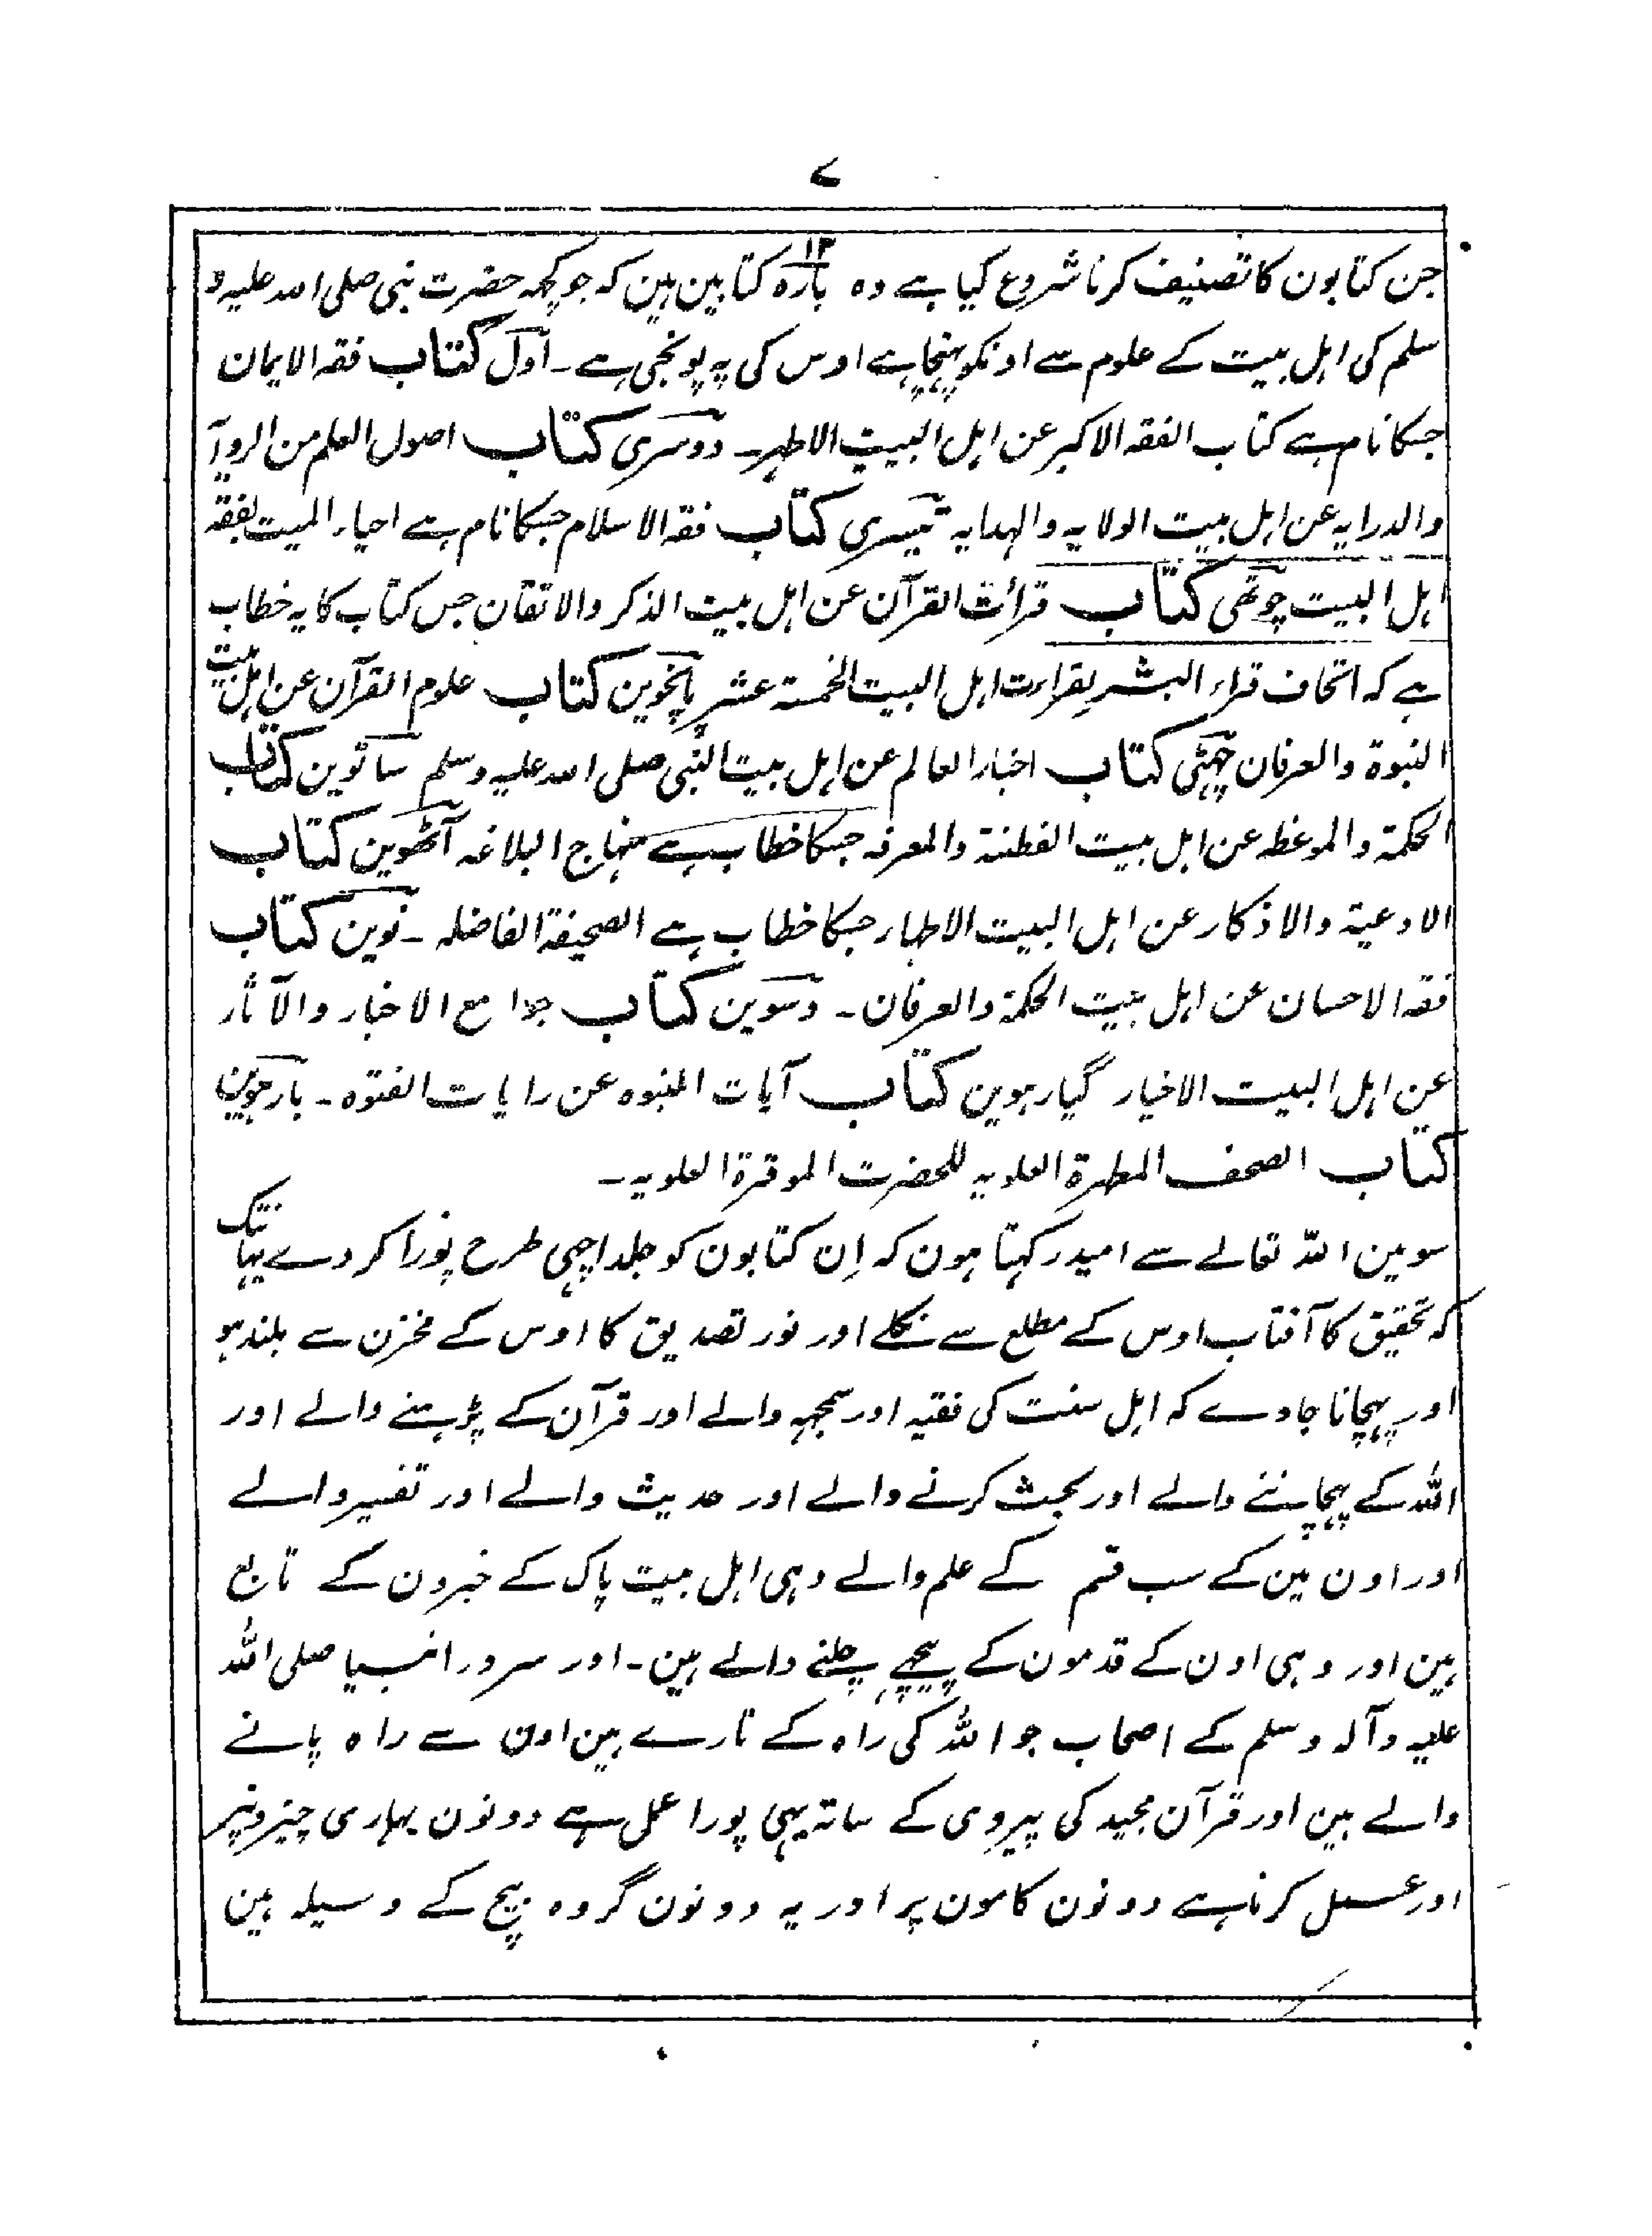 ۷
جن کتابون کا تصنیف کرنا شروع کیا ہے وہ بارہ ۱۲ کتابین ہین کہ جو کچہ حضرت نبی صلی اللہ علیہ و
سلم کی اہل بیت کے علوم سے اونکو پہنچا ہے اوس کی یہ پونجی ہے ۔ اول کتاب فقہ الایمان
جسکا نام ہے کتاب الفقہ الاکبر عن اہل البیت الاطہر ۔ دوسری کتاب اصول العلم من الروآ
والدرایہ عن اہل بیت الولایہ والہدایہ تیسری کتاب فقہ الاسلام جسکا نام ہے احیاء المیت بفقہ
اہل البیت چوتھی کتاب قرائت القرآن عن اہل بیت الذکر والاتقان جس کتاب کا یہ خطاب
ہے کہ اتحاف قراء البشر بقراءت اہل البیت الخمسۃ عشر پانچوین کتاب علوم القرآن عن اہل بیت
النبوۃ والعرفان چہٹی کتاب اخبار العالم عن اہل بیت النبی صلی اللہ علیہ وسلم ساتوین کتاب
الحکمۃ والموعظہ عن اہل بیت الفطنۃ والمعرفہ جسکا خطاب ہے منہاج البلاغہ آٹھوین کتاب
الادعیۃ والاذکار عن اہل البیت الاطہار جسکا خطاب ہے الصحیفۃ الفاضلہ ۔ نوین کتاب
فقہ الاحسان عن اہل بیت الحکمۃ والعرفان ۔ دسوین کتاب جوامع الاخبار والآثار
عن اہل البیت الاخیار گیارہوین کتاب آیات النبوہ عن رایات الفتوہ ۔ بارہوین
کتاب الصحف المطہرۃ العلویہ للحضرت الموقرۃ العلویہ ۔
سو مین اللہ تعالے سے امید رکہتا ہون کہ اِن کتابون کو جلد اچہی طرح پورا کر دے یہانتک
کہ تحقیق کا آفتاب اوس کے مطلع سے نکلے اور نور تصدیق کا اوس کے مخزن سے بلند ہو
اور پہچانا جاوے کہ اہل سنت کی فقیہ اور سمجہہ والے اور قرآن کے پڑہنے والے اور
اللہ کے پہچاننے والے اور بحث کرنے والے اور حدیث والے اور تفسیر والے
اور اون مین کے سب قسم کے علم والے وہی اہل بیت پاک کے خبرون کے تابع
ہین اور وہی اون کے قدمون کے پیچہے چلنے والے ہین ۔ اور سرور انبیا صلی اللہ
علیہ وآلہ وسلم کے اصحاب جو اللہ کی راہ کے تارے ہین اون سے راہ پانے
والے ہین اور قرآن مجید کی پیروی کے ساتہ یہی پورا عمل ہے دونون بہاری چیزونپر
اور عمل کرنا ہے دونون کامون پر اور یہ دونون گروہ بیچ کے وسیلہ ہین